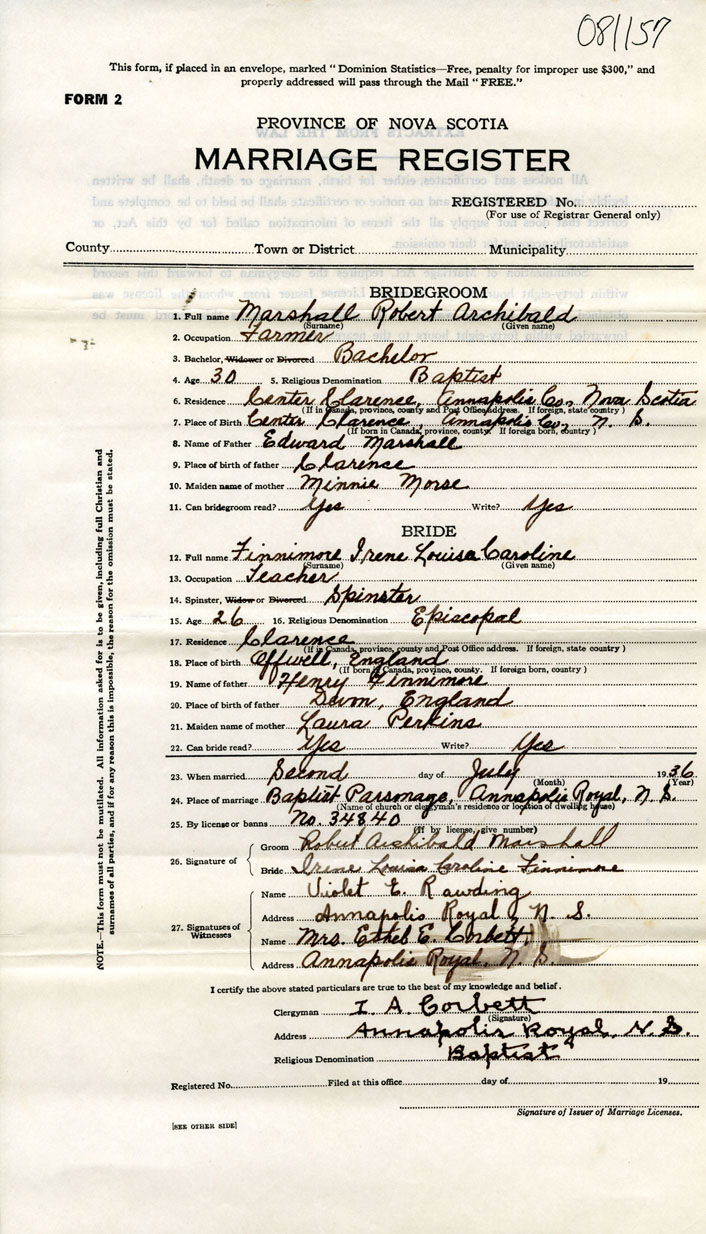 081157
This form, if placed in an envelope, marked "Dominion Statistics—Free, penalty for improper use $300," and
properly addressed will pass through the Mail "FREE."
FORM 2
PROVINCE OF NOVA SCOTIA
MARRIAGE REGISTER
REGISTERED No.
(For use of Registrar General only)
County Town or District Municipality
BRIDEGROOM
1. Full name Marshall Robert Archibald
(Surname) (Given name)
2. Occupation Farmer
3. Bachelor, Widower or Divorced Bachelor
4. Age 30 5. Religious Denomination Baptist
6. Residence Center Clarence, Annapolis Co., Nova Scotia
(If in Canada, province, county and Post Office address. If foreign, state country)
7. Place of Birth Center Clarence, Annapolis Co., N. S.
(If born in Canada, province, county. If foreign born, country)
8. Name of Father Edward Marshall
9. Place of birth of father Clarence
10. Maiden name of mother Minnie Morse
11. Can bridegroom read? Yes Write? Yes
BRIDE
12. Full name Finnimore Irene Louisa Caroline
(Surname) (Given name)
13. Occupation Teacher
14. Spinster, Widow or Divorced Spinster
15. Age 26 16. Religious Denomination Episcopal
17. Residence Clarence
(If in Canada, province, county and Post Office address. If foreign, state country)
18. Place of birth Offwell, England
(If born in Canada, province, county. If foreign born, country)
19. Name of father Henry Finnimore
20. Place of birth of father England
21. Maiden name of mother Laura Perkins
22. Can bride read? Yes Write? Yes
23. When married Second day of July 1936
(Month) (Year)
24. Place of marriage Baptist Parsonage, Annapolis Royal, N. S.
(Name of church or clergyman's residence or location of dwelling house)
25. By license or banns No. 34840
(If by license, give number)
26. Signature of
Groom Robert Archibald Marshall
Bride Irene Louisa Caroline Finnimore
27. Signatures of Witnesses
Name Violet E. Rawding
Address Annapolis Royal, N. S.
Name Mrs. Ethel E. Corbett
Address Annapolis Royal, N. S.
I certify the above stated particulars are true to the best of my knowledge and belief.
Clergyman I. A. Corbett
(Signature)
Address Annapolis Royal, N. S.
Religious Denomination Baptist
Registered No. Filed at this office day of 19
Signature of Issuer of Marriage Licenses.
[SEE OTHER SIDE]
NOTE.—This form must not be mutilated. All information asked for is to be given, including full Christian and
surnames of all parties, and if for any reason this is impossible, the reason for the omission must be stated.